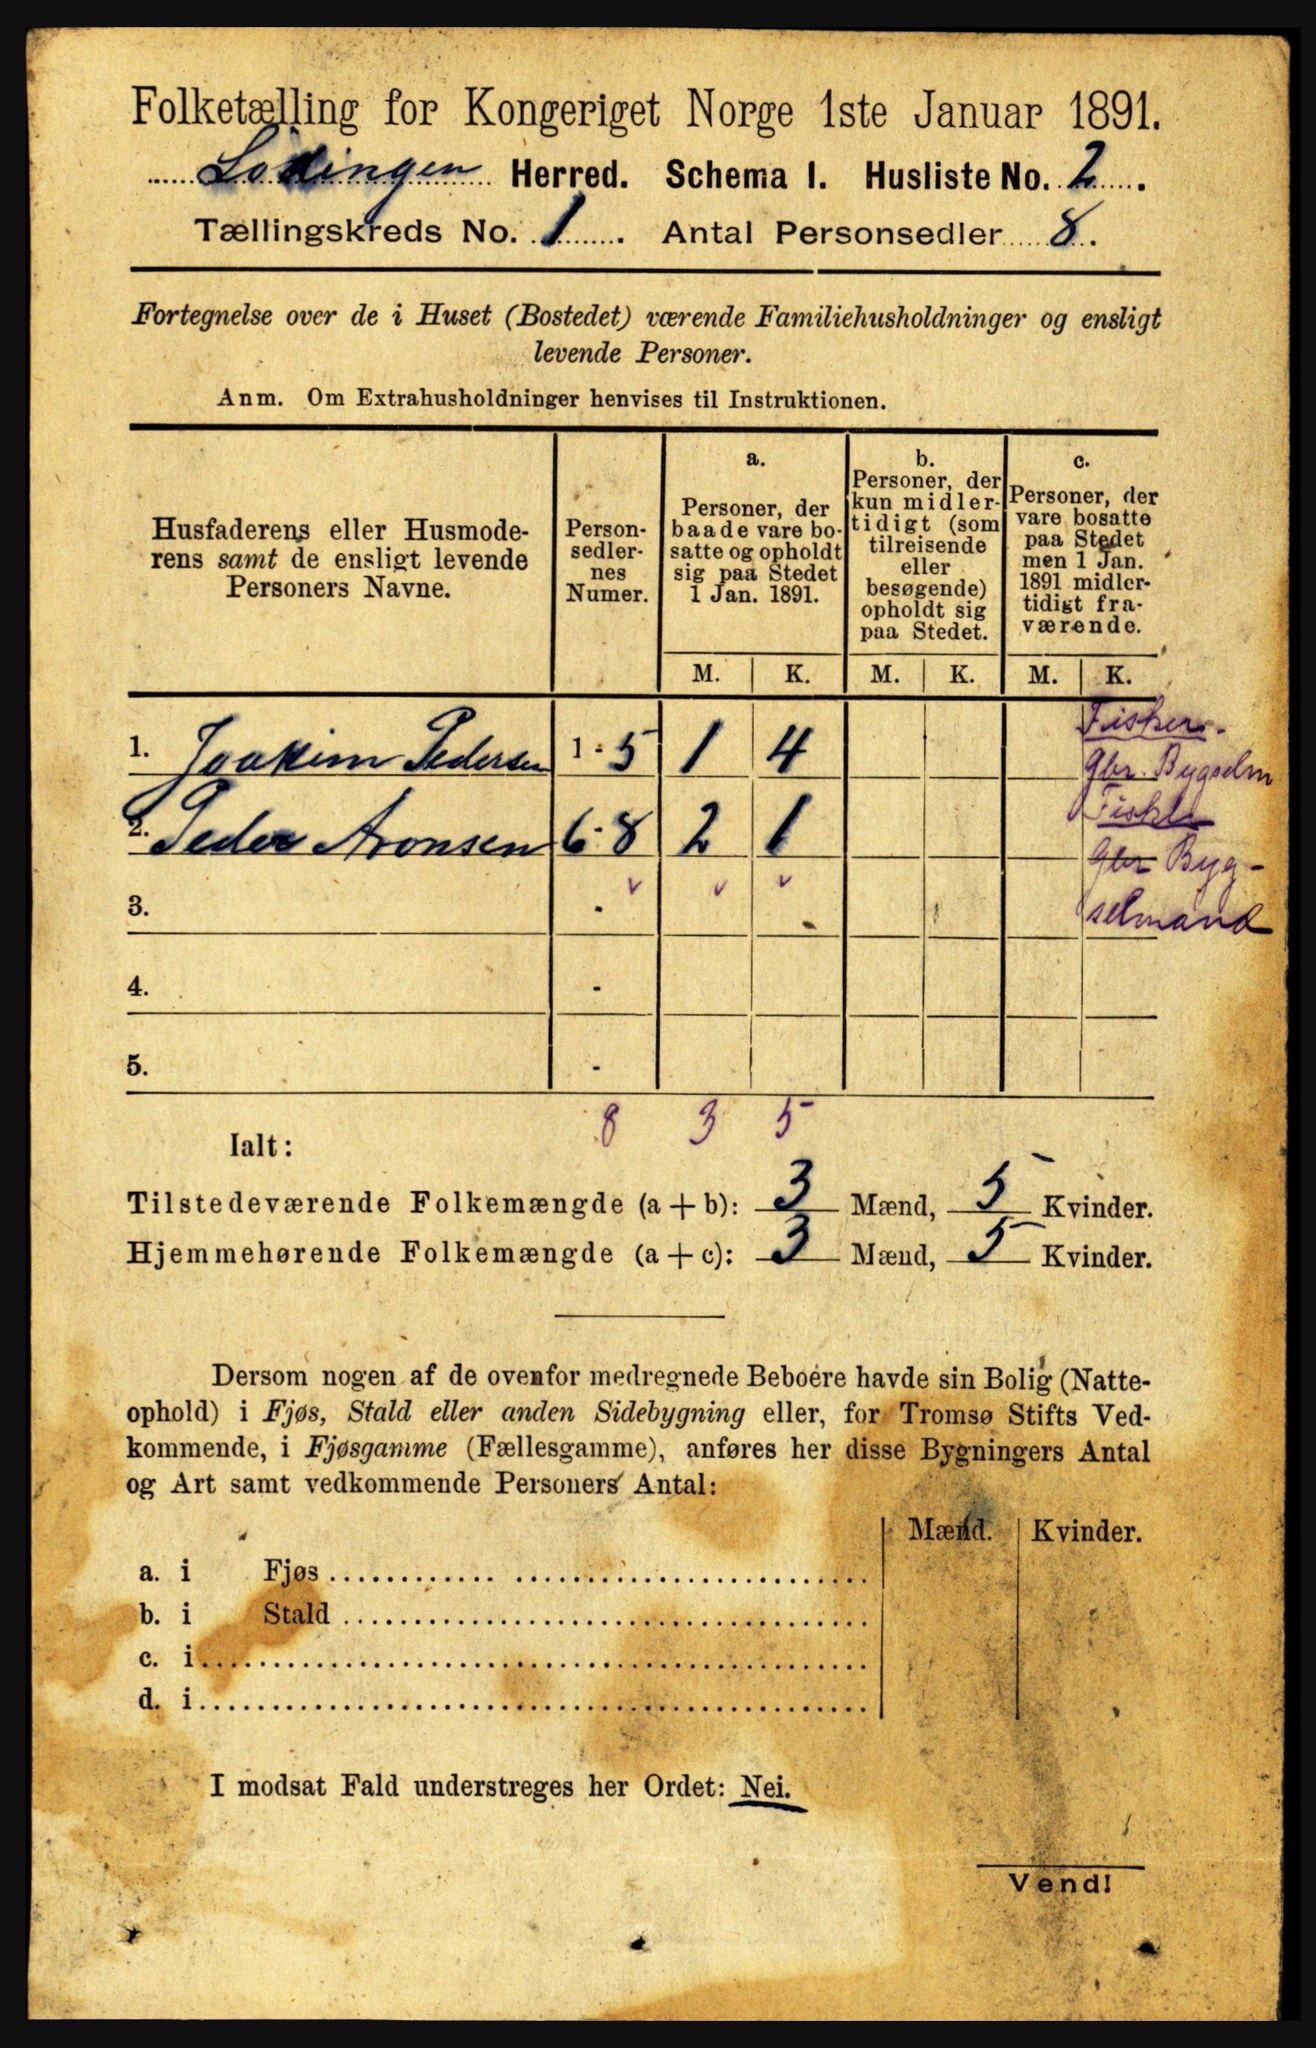 Folketælling for Kongeriget Norge 1ste Januar 1891.
Lodingen Herred. Schema I. Husliste No. 2.
Tællingskreds No. 1. Antal Personsedler 8.
Fortegnelse over de i Huset (Bostedet) værende Familiehusholdninger og ensligt
levende Personer.
Anm. Om Extrahusholdninger henvises til Instruktionen.
Husfaderens eller Husmode-
rens samt de ensligt levende
Personers Navne.
Person-
sedler-
nes
Numer.
a.
Personer, der
baade vare bo-
satte og opholdt
sig paa Stedet
1 Jan. 1891.
b.
Personer, der
kun midler-
tidigt (som
tilreisende
eller
besøgende)
opholdt sig
paa Stedet.
c.
Personer, der
vare bosatte
paa Stedet
men 1 Jan.
1891 midler-
tidigt fra-
værende.
M. K. M. K. M. K.
1. Joakim Pedersen 1 - 5 1 4 Fisker.
Gbr. Bygselm
2. Peder Aronsen 6 - 8 2 1 Fisker
Gbr Byg-
selmand
v v v
3. -
4. -
5. -
8 3 5
Ialt:
Tilstedeværende Folkemængde (a + b): 3 Mænd, 5 Kvinder.
Hjemmehørende Folkemængde (a + c): 3 Mænd, 5 Kvinder.
Dersom nogen af de ovenfor medregnede Beboere havde sin Bolig (Natte-
ophold) i Fjøs, Stald eller anden Sidebygning eller, for Tromsø Stifts Ved-
kommende, i Fjøsgamme (Fællesgamme), anføres her disse Bygningers Antal
og Art samt vedkommende Personers Antal:
Mænd. Kvinder.
a. i Fjøs
b. i Stald
c. i
d. i
I modsat Fald understreges her Ordet: Nei.
Vend!